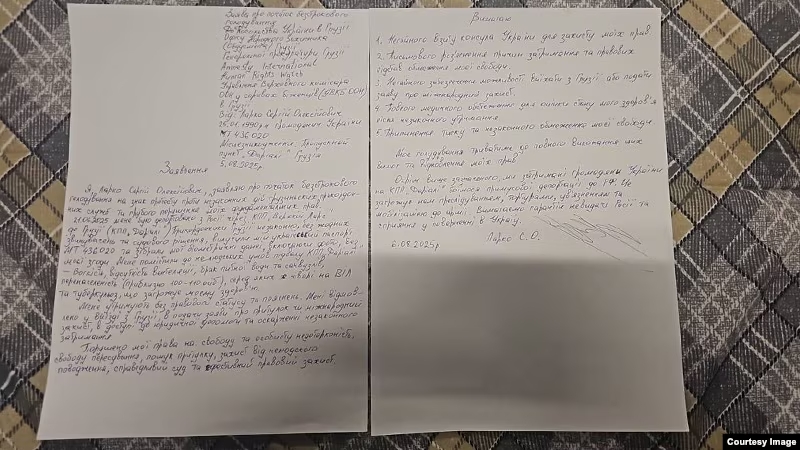 Заява про початок безстрокового
голодування
До Посольства України в Грузії
Офісу Народного Захисника
(Омбудсмена) Грузії
Генеральної прокуратури Грузії
Amnesty International
Human Rights Watch
Управління Верховного комісара
ООН у справах біженців (УВКБ ООН)
в Грузії
Від: Ларко Сергій Олексійович
1990 р.н. громадянин України
436020
Місцезнаходження: Прикордонний
пункт „Даріалі" Грузія
5.08.2025р.
Заявлення
Я, Ларко Сергій Олексійович, заявляю про початок безстрокового
голодування на знак протесту проти незаконних дій грузинських прикордон-
них служб та грубого порушення моїх фундаментальних прав.
2025 мене було депортовано з Росії через КПП „Верхній Ларс"
до Грузії (КПП „Даріалі"). Прикордонники Грузії незаконно, без жодних
звинувачень та судового рішення, вилучили мій український паспорт
436020 та зібрали мої біометричні данні, включаючи фото, без
моєї згоди. Мене помістили до нелюдських умов підвалу КПП „Даріалі"
– вогкість, відсутність вентиляції, брак питної води та санвузлів,
перенаселеність (приблизно 100 осіб), серед яких є хворі на ВІЛ
та туберкульоз, що загрожує моєму здоров'ю.
Мене утримують без правового статусу та пояснень. Мені відмов-
лено у в'їзді в Грузії, в подачі заяви про притулок чи міжнародний
захист, в доступі до юридичної допомоги та оскарженні незаконного
затримання.
Порушено мої права на свободу та особисту недоторканість,
свободу пересування, пошук притулку, захист від нелюдського
поводження, справедливий суд та ефективний правовий захист.
Вимагаю
1. Негайного візиту консула України для захисту моїх прав.
2. Письмового роз'яснення причин затримання та правових
підстав обмеження моєї свободи.
3. Негайного забезпечення можливості виїхати з Грузії або подати
заяву про міжнародний захист.
4. Повного медичного обстеження для оцінки стану мого здоров'я
після незаконного утримання.
5. Припинення тиску та незаконного обмеження моєї свободи.
Моє голодування триватиме до повного виконання цих
вимог та відновлення моїх прав.
Окрім вище зазначеного, ми затримані громадяни України
на КПП „Даріалі" боїмося примусової депортації до РФ. Це
загрожує нам переслідуванням, тортурами, ув'язненням та
мобілізацією до армії. Вимагаємо гарантій невидачі Росії та
сприяння у поверненні в Україну.
6.08.2025р. Ларко С. О.
Courtesy Image